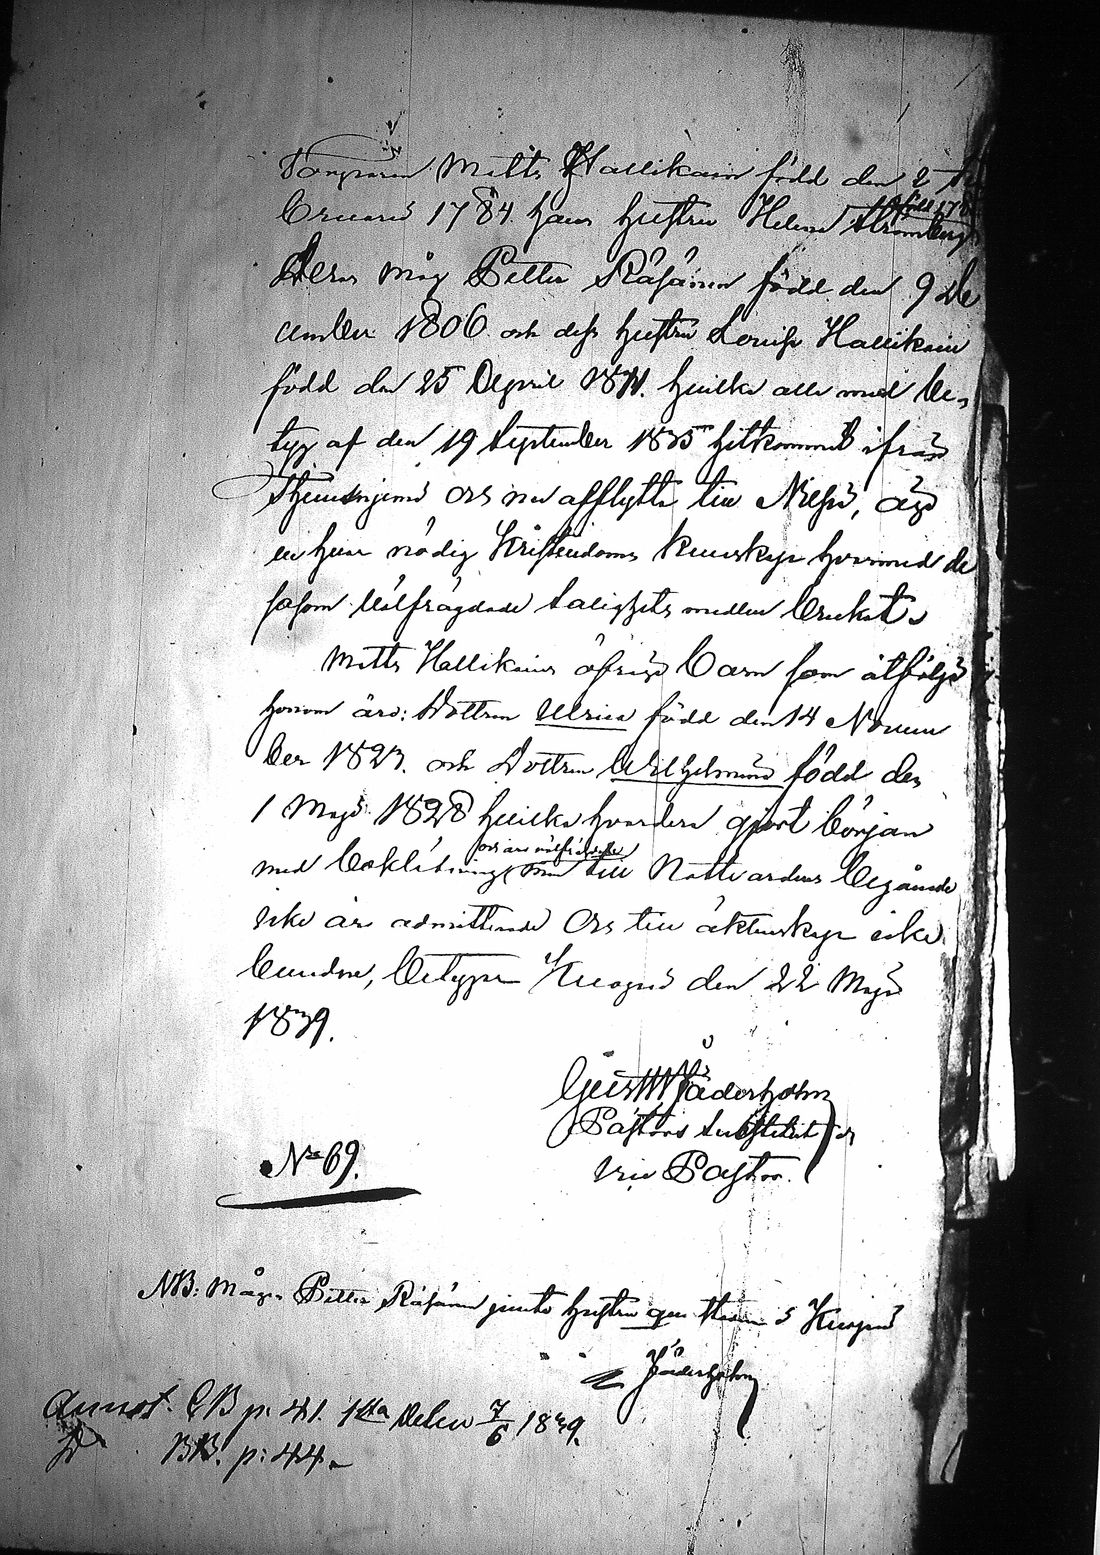 Matts Hallikain född den 2 Fe
bruarii 1784. hans hustru Helena Strömberg
född 178
deras måg Petter Räsänen född den 9 de
cember 1806 och dess hustru Lovisa Hallikain
född den 25 April 1811. hvilka alla med be-
tyg af den 19 September 1835 hitkommit ifrån
och nu afflytta till Nilsiä, äga
en hvar nödig Kristendoms kunskap hvarmed de
såsom välfrägdade salighets medlen brukat.
Matts Hallikains öfriga barn som åtfölja
honom äro: dottren Ulrica född den 14 Novem
ber 1823. och dottren Wilhelmina född den
1 Maji 1828 hvilka hvardera gjort början
och äro välfrägdade
med bokläsning, men till Nattvardens begående
icke äro admitterade och till äktenskap icke
bundne, betygar Kuopio den 22 Maji
1839.
Gust Wilh Jäderholm
Pastors Substitut
vice Pastor.
No 69.
NB: Mågen Petter Räsänen jemte hustru qvar i Kuopio
Jäderholm
Annot. CB p. 41. 1sta Delen 7/6 1839.
BB. p: 44.